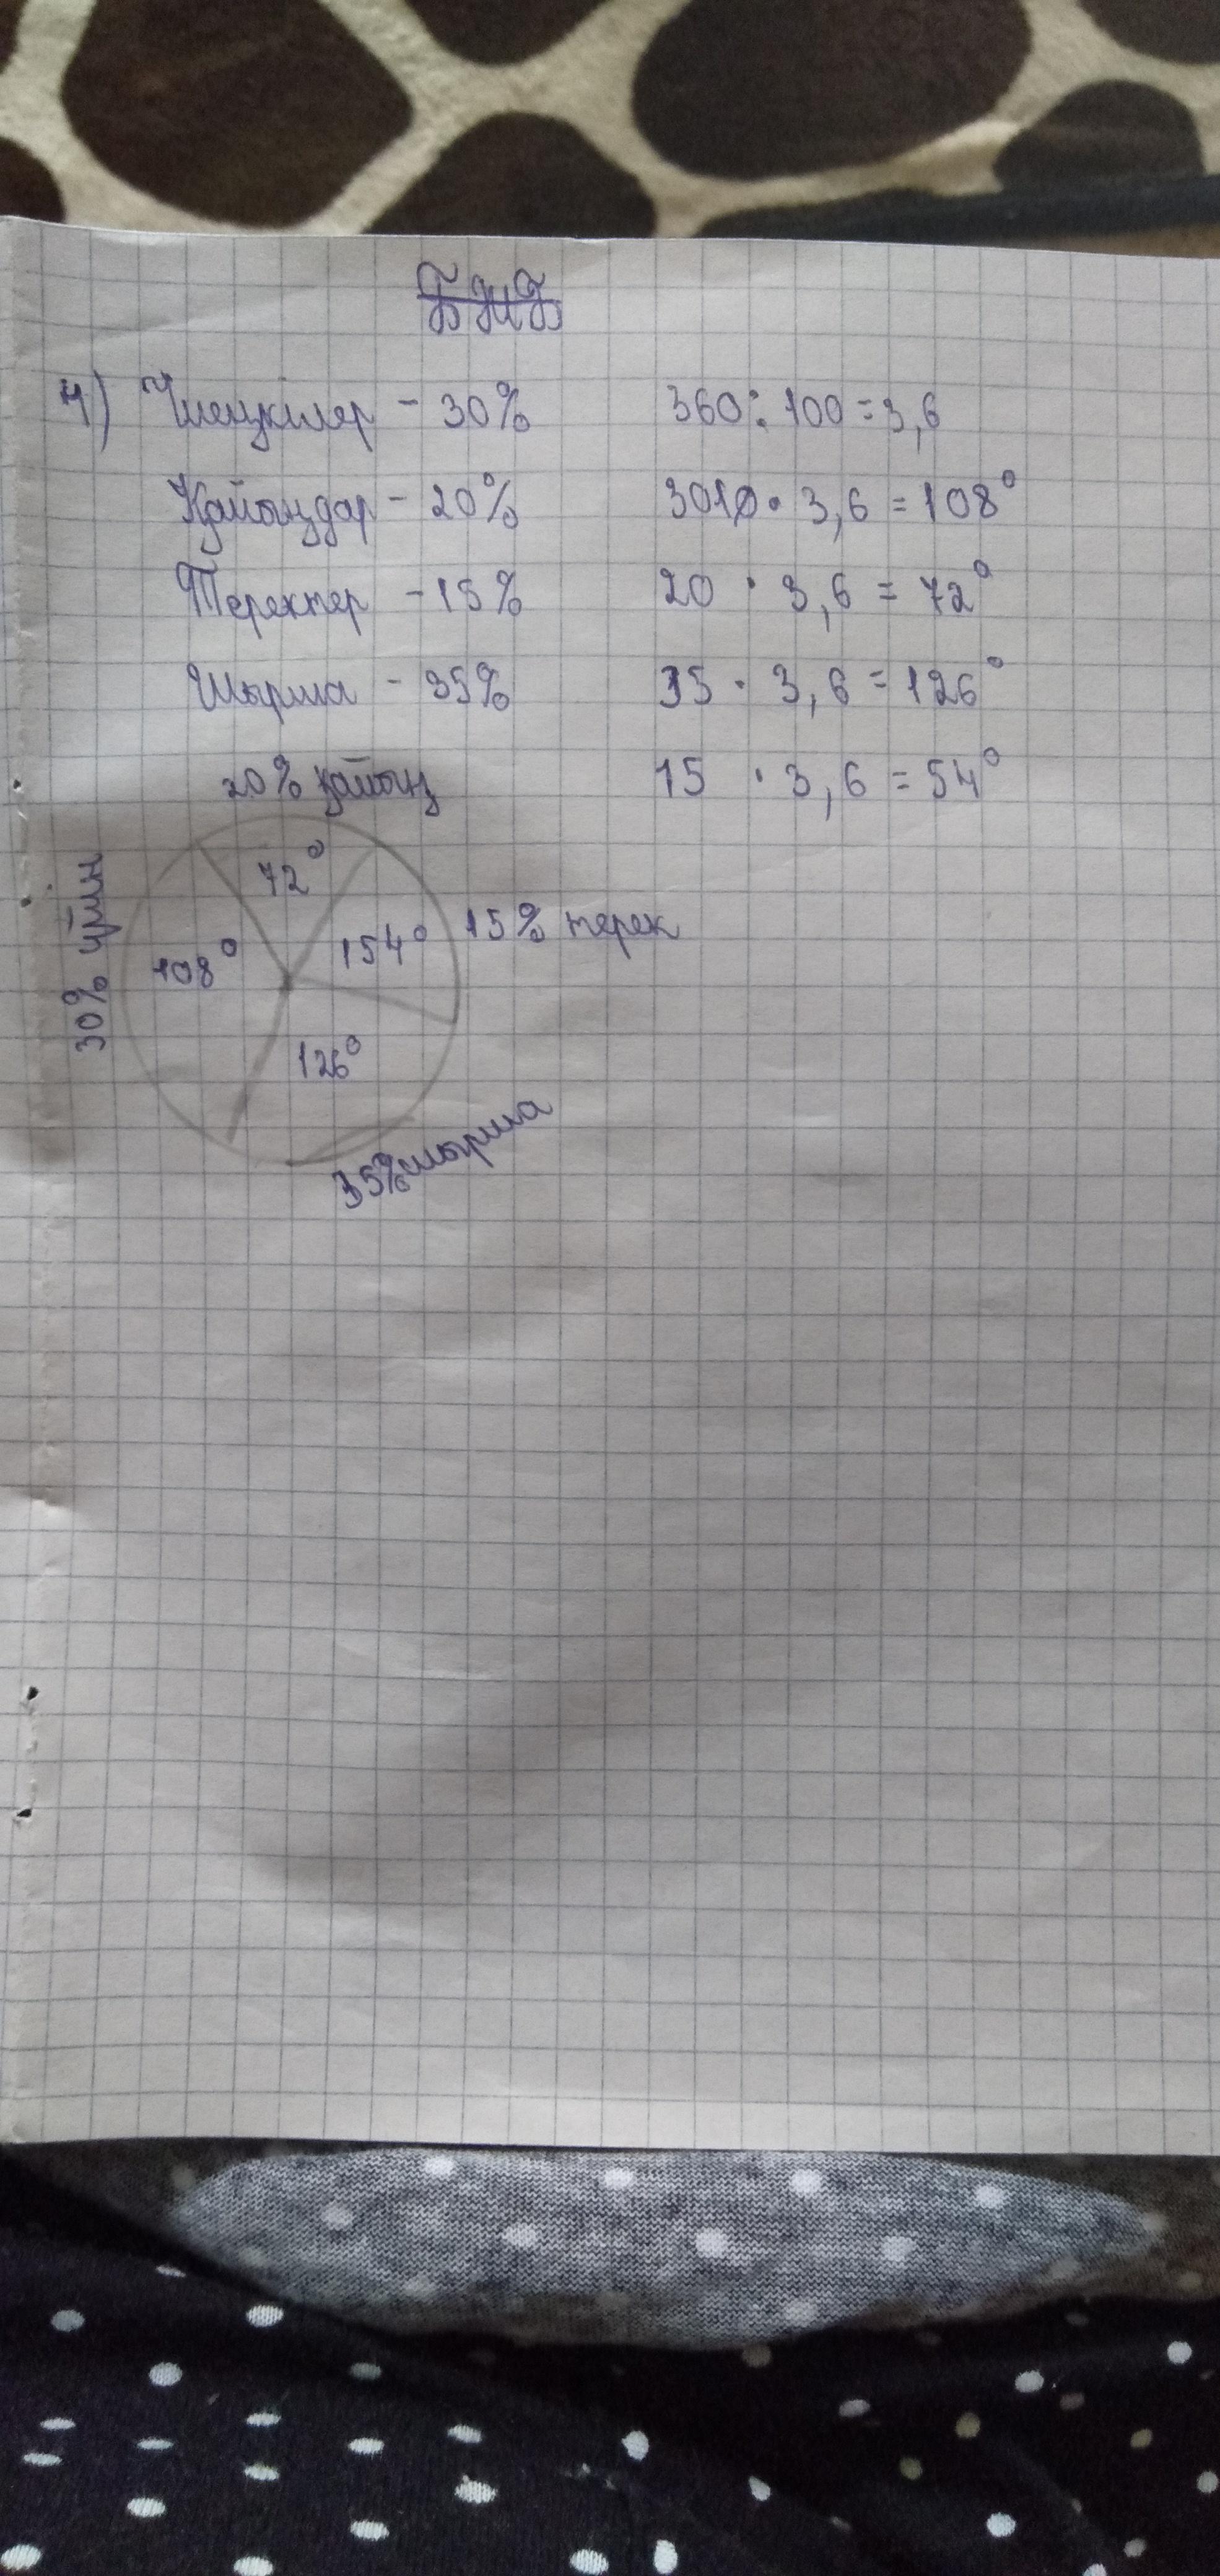 БЖБ
4) Үйеңкілер - 30% 360 : 100 = 3,6
Қайыңдар - 20% 30 · 3,6 = 108°
Теректер - 15% 20 · 3,6 = 72°
Шырша - 35% 35 · 3,6 = 126°
20% қайың 15 · 3,6 = 54°
72°
30%
108°
154°
15% терек
126°
35% шырша